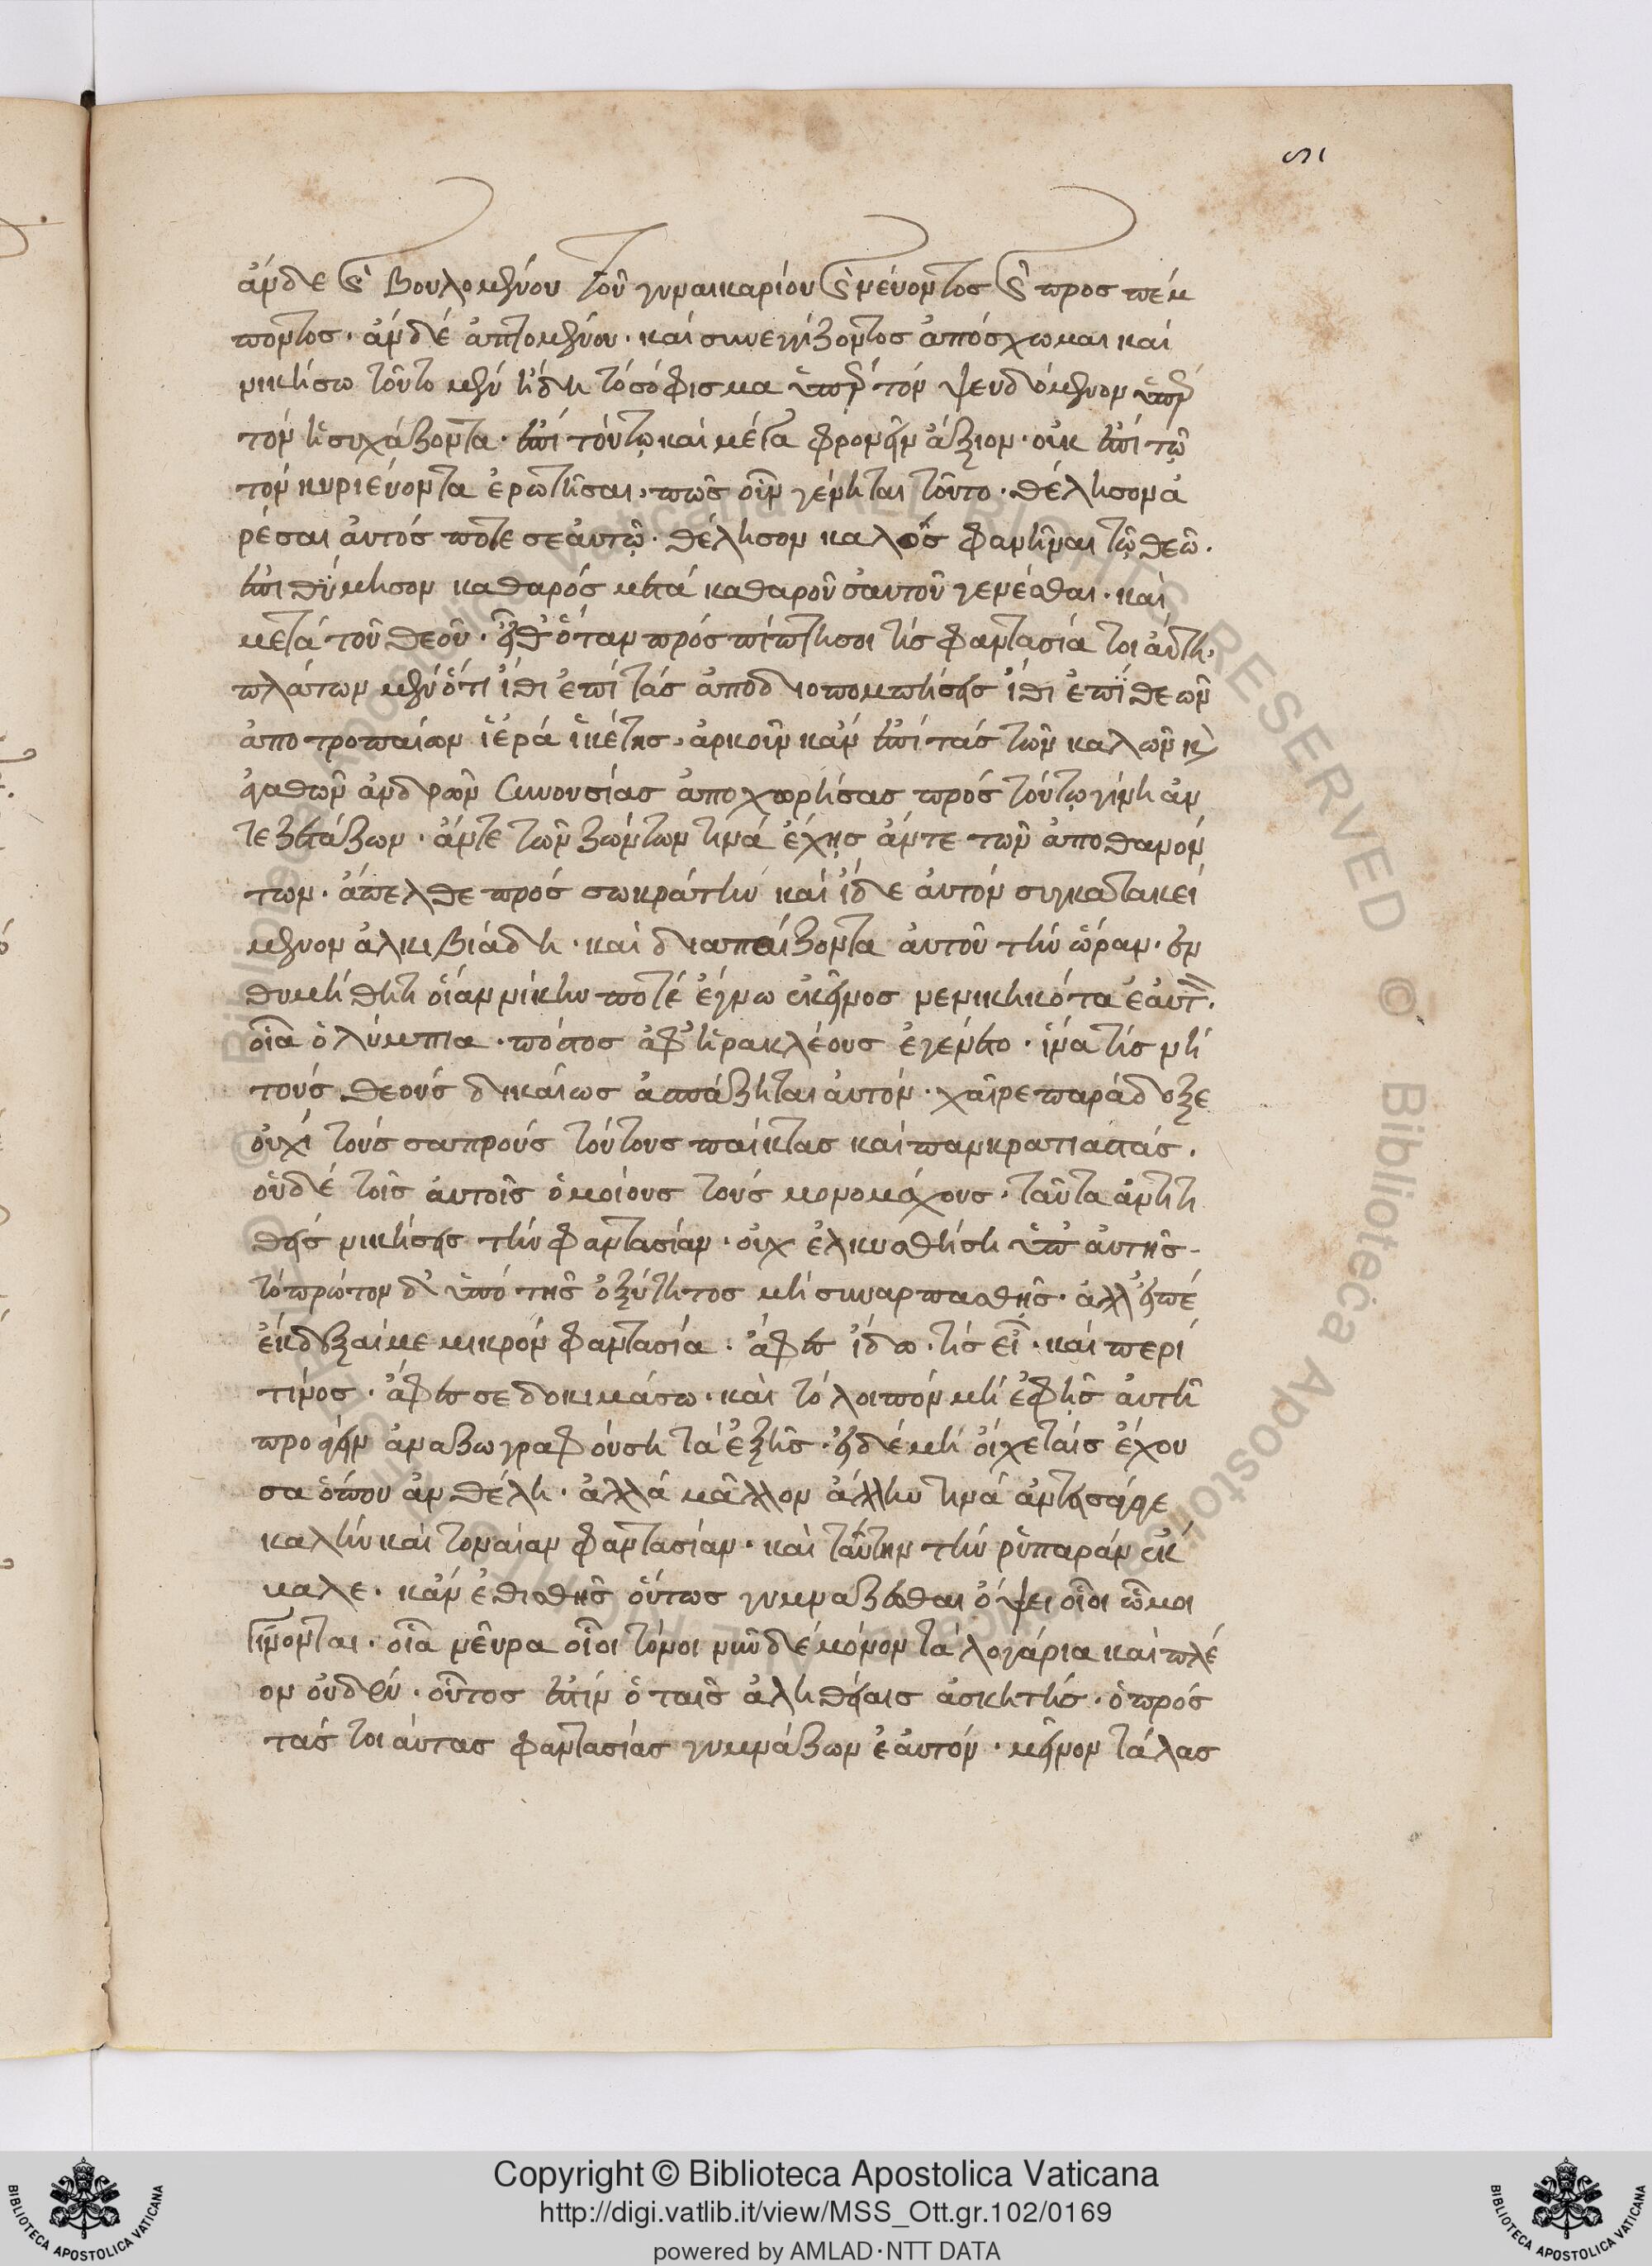 ςι
ἀν δε καὶ βουλομένου τοῦ γυναικαρίου καὶ νεύοντος καὶ προσπέμ
ποντος· ἀν δέ ἁπτομένου· καί συνεγγίζοντος ἀπόσχωμαι καί
νικήσω τοῦτο μὲν ἤδη τό σόφισμα ὑπὲρ τόν ψευδόμενον ὑπὲρ
τόν ἡσυχάζοντα· ἐπί τούτω καί μέγα φρονεῖν ἄξιον· οὐκ ἐπί τῶ
τόν κυριεύοντα ἐρωτῆσαι· πῶς οὖν γένηται τοῦτο· θέλησον ἀ
ρέσαι αὐτός ποτε σεαυτῶ· θέλησον καλός φανῆναι τῶ θεῶ·
ἐπιθύμησον καθαρός μετά καθαροῦ σαυτοῦ γενέσθαι· καί
μετά τοῦ θεοῦ· εἶθ' ὅταν προσπίπτη σοι τίς φαντασία τοιαύτη·
πλάτων μὲν ὅτι ἴθι ἐπί τάς ἀποδιοπομπήσεις ἴθι ἐπί θεῶν
ἀποτροπαίων ἱερά ἱκέτης· ἀρκοῦν κἀν ἐπί τάς τῶν καλῶν κ
ἀγαθῶν ἀνδρῶν συνουσίας ἀποχωρήσας πρός τούτω γίνη ἀν
τεξετάζων· ἄντε τῶν ζώντων τινά ἔχης ἄντε τῶν ἀποθανόν
των· ἄπελθε πρός σωκράτην καί ἴδε αὐτόν συγκατακεί
μενον ἀλκιβιάδη· καί διαπαίζοντα αὐτοῦ τήν ὥραν· ἐν
θυμήθητι οἵαν νίκην ποτέ ἔγνω ἐκεῖνος νενικηκότα ἑαυτ·
οἷα ὀλύμπια· πόστος ἀφ' ἡρακλέους ἐγένετο· ἵνα τίς νή
τούς θεούς δικαίως ἀσπάζηται αὐτόν· χαῖρε παράδοξε
οὐχί τούς σαπρούς τούτους παίκτας καί παγκρατιαστάς·
οὐδέ τοῖς αὐτοῖς ὁμοίους τούς μονομάχους· ταῦτα ἀντιτι
θείς νικήσεις τήν φαντασίαν· οὐχ ἑλκυσθήση ὑπ' αὐτῆς·
τό πρῶτον δ' ὑπό τῆς ὀξύτητος μή συναρπασθῆς· ἀλλ' εἰπέ
ἔκδεξαί με μικρόν φαντασία· ἄφες ἴδω· τίς εἶ· καί περί
τίνος· ἄφες σε δοκιμάσω· καί τό λοιπόν μή ἐφῆς αὐτῆ
προάγειν ἀναζωγραφούση τά ἑξῆς· εἰ δέ μή οἴχεταίς ἔχου
σα ὅπου ἀν θέλη· ἀλλά μᾶλλον ἄλλην τινά ἀντεισάγαγε
καλήν καί γοναίαν φαντασίαν· καί ταύτην τήν ῥυπαράν ἐκ
καλε· κἀν ἐθισθῆς οὕτως γυμνάζεσθαι ὄψει οἷοι ὦμοι
γίνονται· οἷα νεῦρα οἷοι τόνοι νῦν δέ μόνον τά λογάρια καί πλέ
ον οὐδέν· οὗτος ἐστίν ὁ ταῖς ἀληθείαις ἀσκητής· ὁ πρός
τάς τοιαύτας φαντασίας γυμνάζων ἑαυτόν· μεῖνον τάλας
Copyright © Biblioteca Apostolica Vaticana
http://digi.vatlib.it/view/MSS_Ott.gr.102/0169
powered by AMLAD·NTT DATA